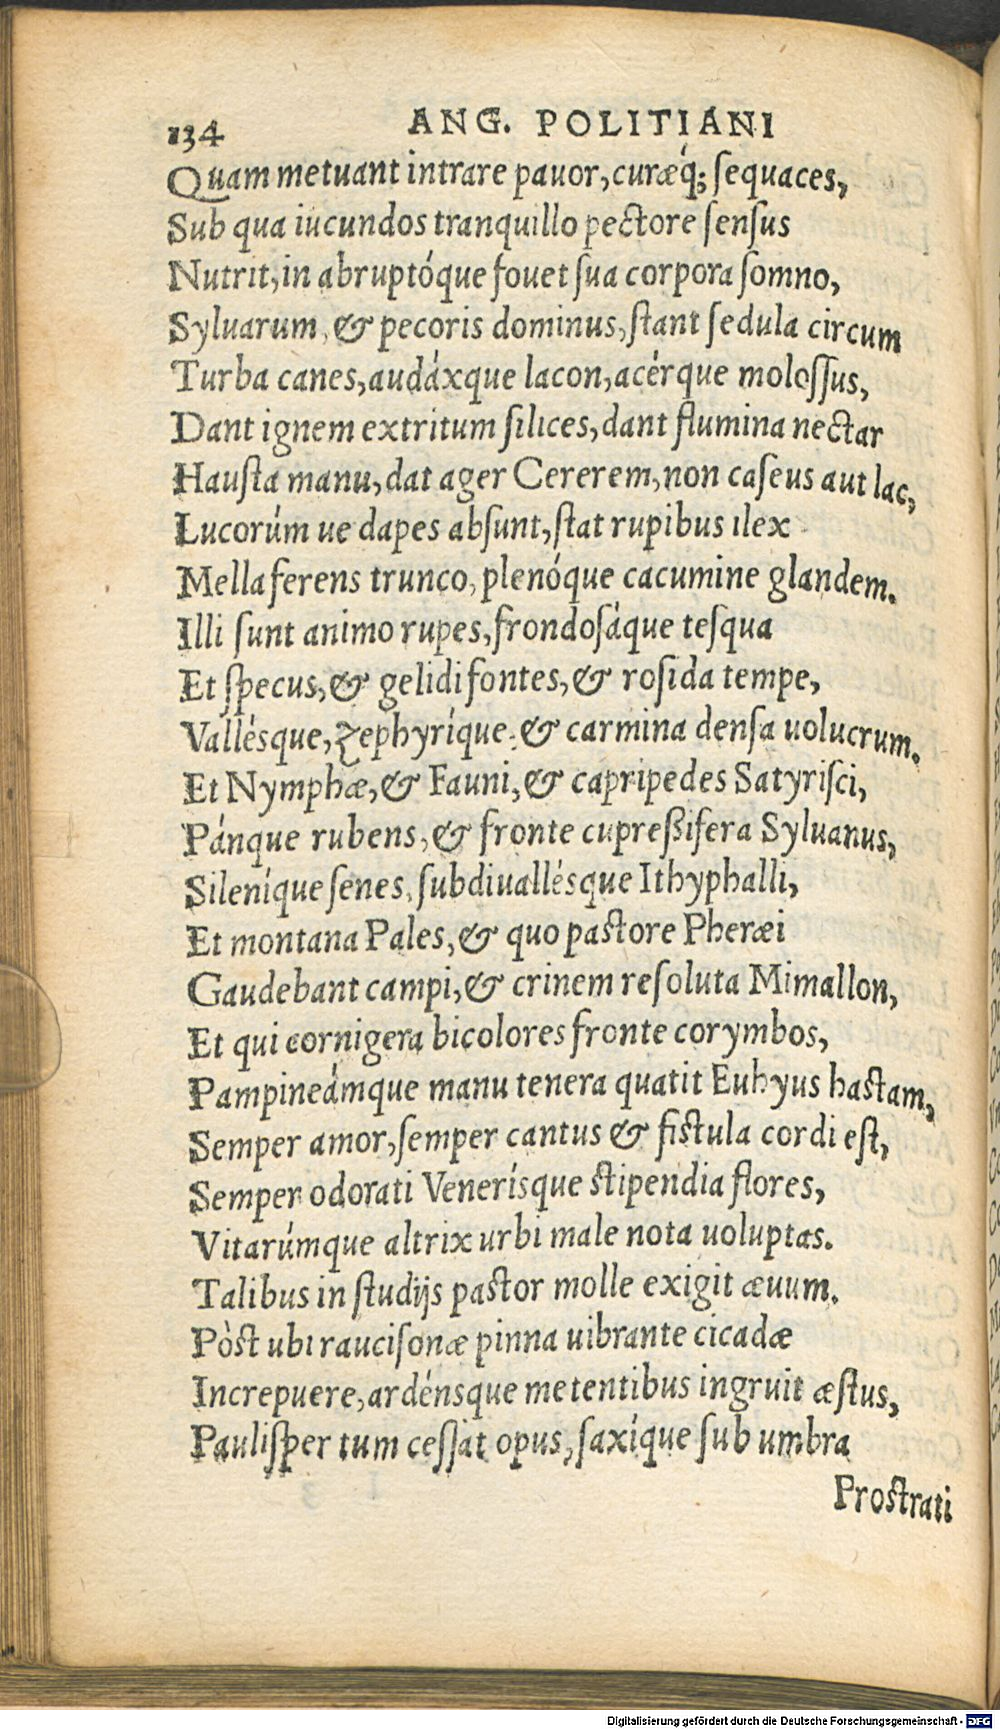 134 ANG. POLITIANI
Quam metuant intrare pauor, curæq́; ſequaces,
Sub qua iucundos tranquillo pectore ſenſus
Nutrit, in abruptóque fouet ſua corpora ſomno,
Syluarum, & pecoris dominus, ſtant ſedula circum
Turba canes, audáxque lacon, acérque moloſſus,
Dant ignem extritum ſilices, dant flumina nectar
Hauſta manu, dat ager Cererem, non caſeus aut lac,
Lucorúm ue dapes abſunt, ſtat rupibus ilex
Mella ferens trunco, plenóque cacumine glandem.
Illi ſunt animo rupes, frondoſáque teſqua
Et ſpecus, & gelidi fontes, & roſida tempe,
Vallésque, zephyríque, & carmina denſa uolucrum.
Et Nymphæ, & Fauni, & capripedes Satyriſci,
Pánque rubens, & fronte cupreßifera Syluanus,
Sileníque ſenes, ſubdiuallésque Ithyphalli,
Et montana Pales, & quo paſtore Pheræi
Gaudebant campi, & crinem reſoluta Mimallon,
Et qui cornigera bicolores fronte corymbos,
Pampineámque manu tenera quatit Euhyus haſtam,
Semper amor, ſemper cantus & fiſtula cordi eſt,
Semper odorati Venerísque ſtipendia flores,
Vitarúmque altrix urbi male nota uoluptas.
Talibus in ſtudijs paſtor molle exigit æuum.
Pòſt ubi rauciſonæ pinna uibrante cicadæ
Increpuere, ardénsque metentibus ingruit æſtus,
Pauliſper tum ceſſat opus, ſaxíque ſub umbra
Proſtrati
Digitalisierung gefördert durch die Deutsche Forschungsgemeinschaft - DFG